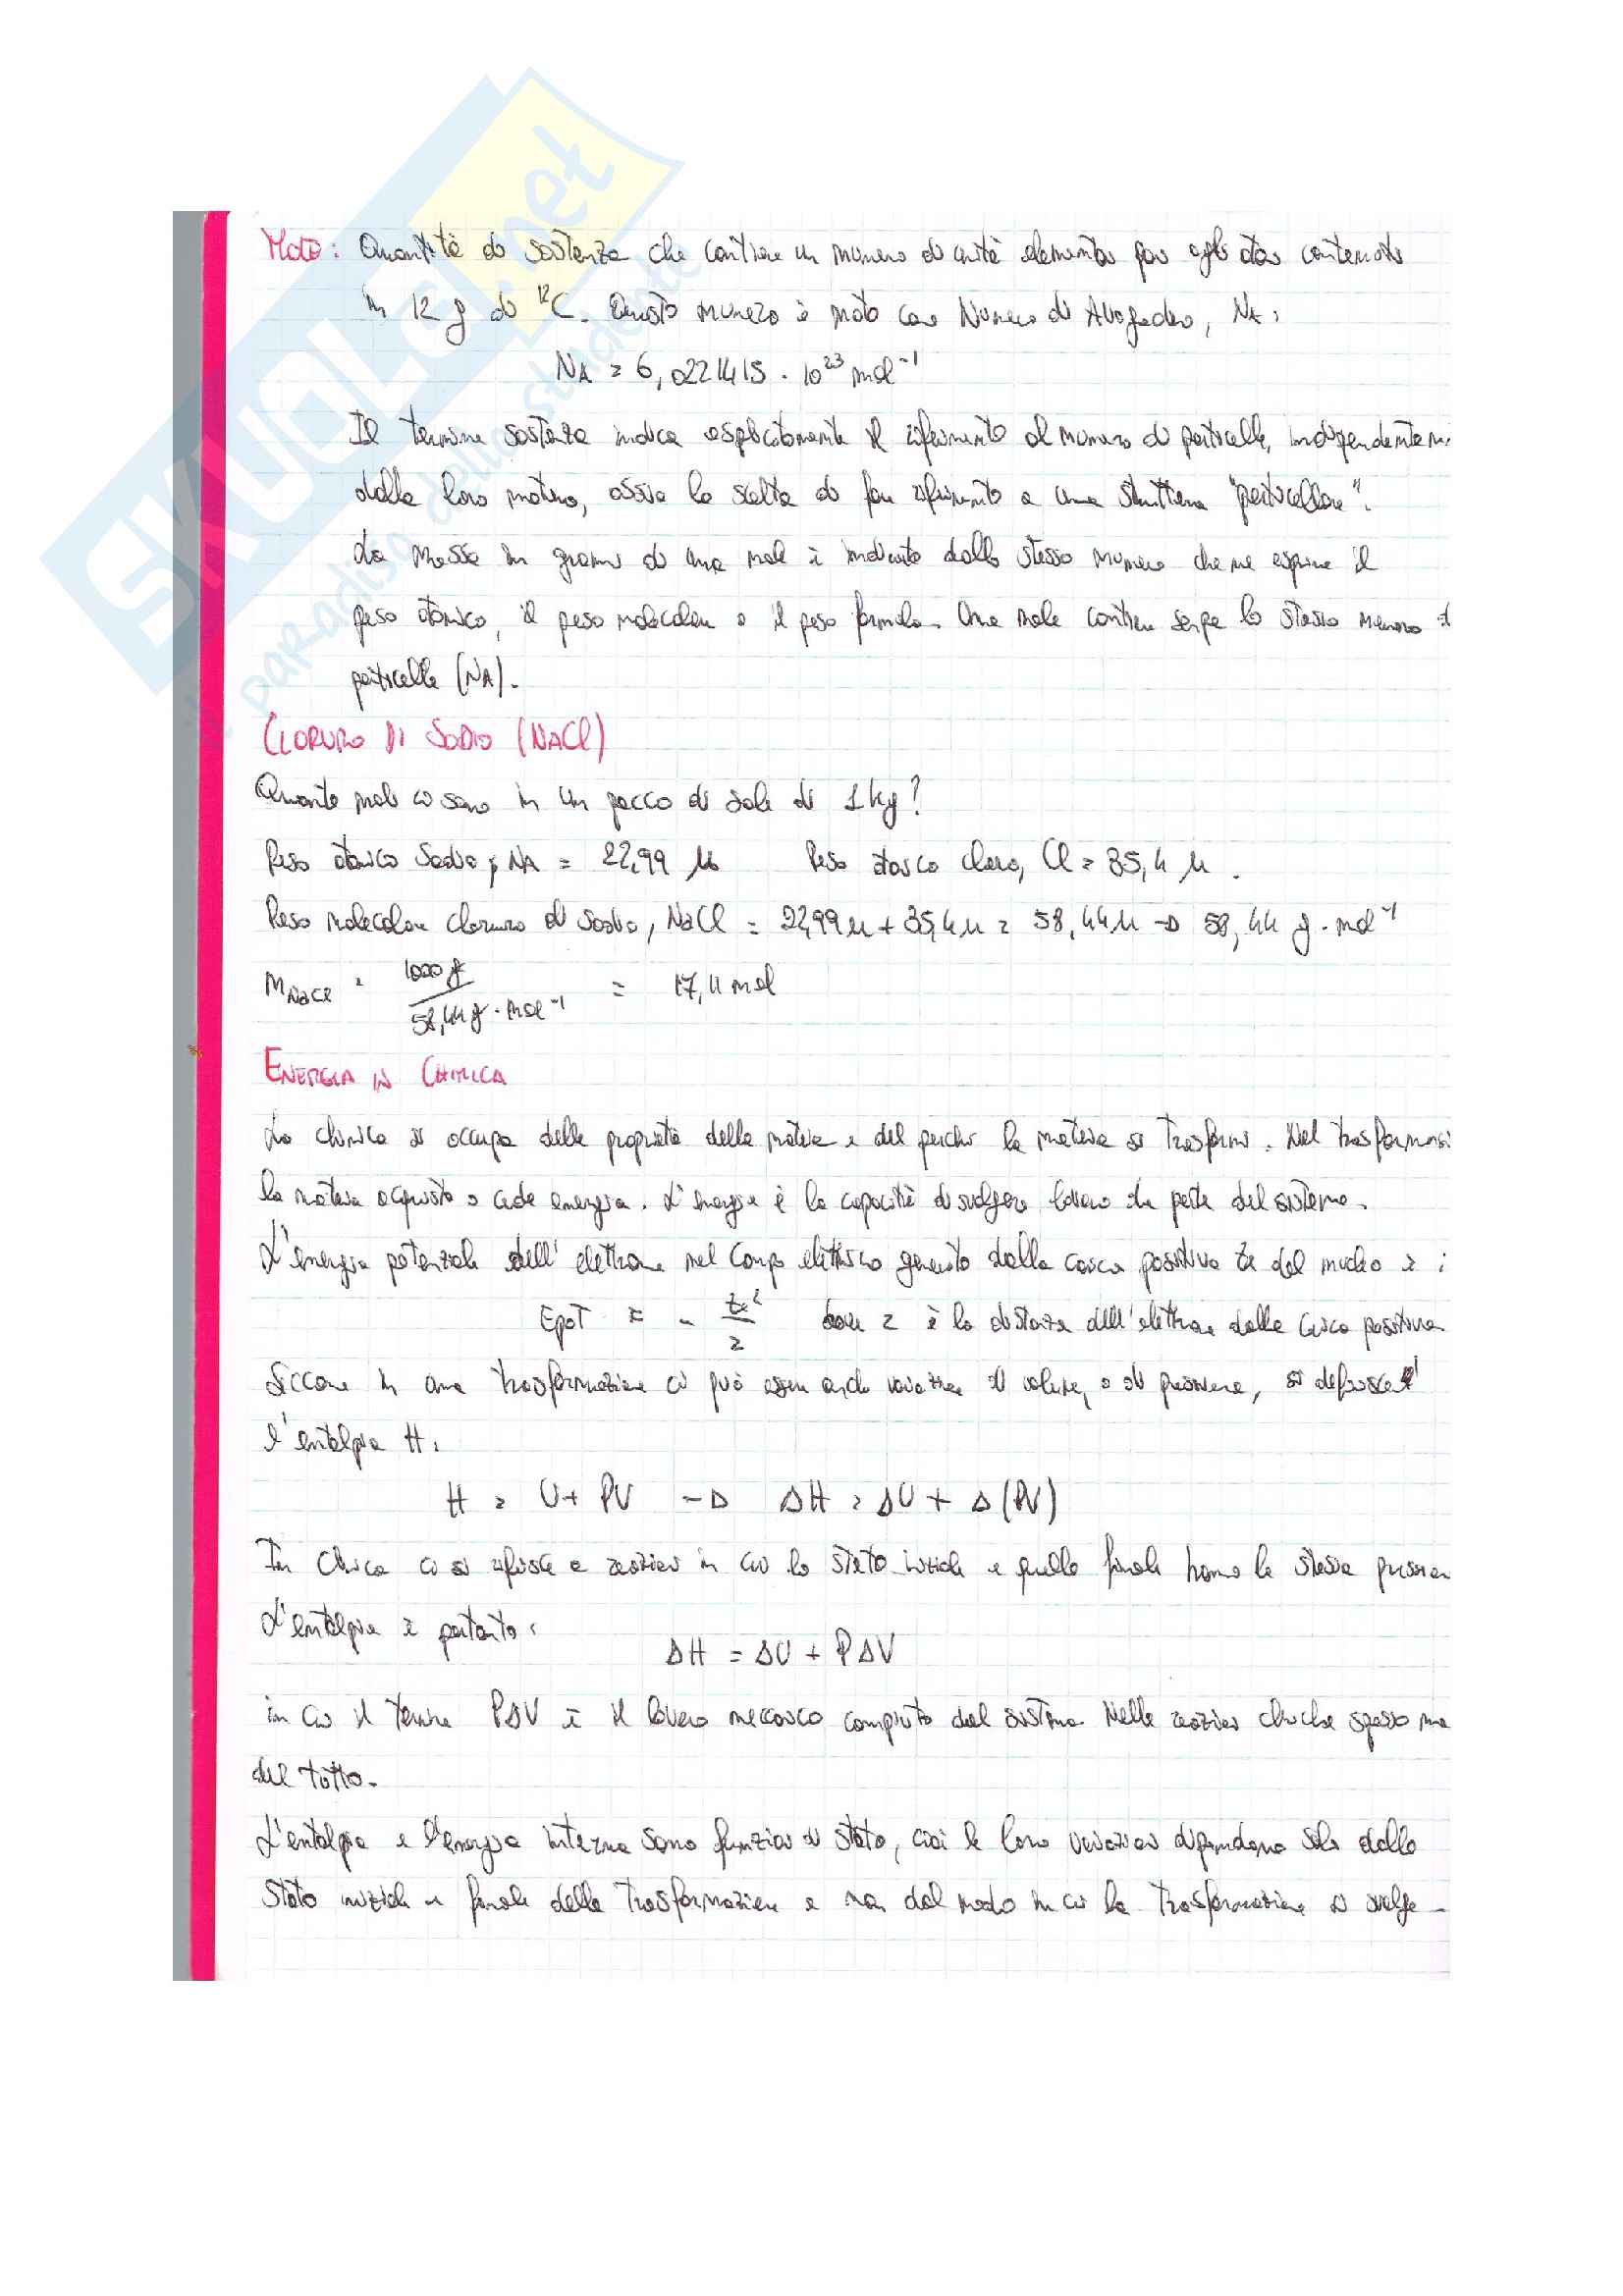 SKUOLA.net
il paradiso dello studente
Mole: Quantità di sostanza che contiene un numero di unità elementari pari agli atomi contenuti
in 12 g di ¹²C. Questo numero è noto come Numero di Avogadro, NA:
NA = 6,0221415 · 10²³ mol⁻¹
Il termine sostanza indica esplicitamente il riferimento al numero di particelle, indipendentem
dalla loro natura, ossia la scelta di fare riferimento a una struttura "particellare".
La massa in grammi di una mole è indicata dallo stesso numero che ne esprime il
peso atomico, il peso molecolare o il peso formula. Una mole contiene sempre lo stesso numero d
particelle (NA).
CLORURO DI SODIO (NaCl)
Quante moli ci sono in un pacco di sale di 1kg?
Peso atomico Sodio, NA = 22,99 u Peso atomico cloro, Cl = 35,4 u.
Peso molecolare cloruro di sodio, NaCl = 22,99u + 35,4u = 58,44u → 58,44 g · mol⁻¹
nNaCl = 1000 g / 58,44 g · mol⁻¹ = 17,11 mol
ENERGIA IN CHIMICA
La chimica si occupa delle proprietà della materia e del perché la materia si trasformi. Nel trasformarsi
la materia acquista o cede energia. L'energia è la capacità di svolgere lavoro da parte del sistema.
L'energia potenziale dell'elettrone nel campo elettrico generato dalla carica positiva ze del nucleo è:
Epot = - ze²/r dove r è la distanza dell'elettrone dalla carica positiva
Siccome in una trasformazione ci può essere anche variazione di volume, o di pressione, si definisce
l'entalpia H:
H = U + PV → ΔH = ΔU + Δ(PV)
In Chimica ci si riferisce a reazioni in cui lo stato iniziale e quello finale hanno la stessa pression
L'entalpia è pertanto:
ΔH = ΔU + PΔV
in cui il termine PΔV è il lavoro meccanico compiuto dal sistema Nelle reazioni chimiche spesso ma
del tutto.
L'entalpia e l'energia interna sono funzioni di stato, cioè le loro variazioni dipendono solo dallo
Stato iniziale e finale della trasformazione e non dal modo in cui la trasformazione si svolge.